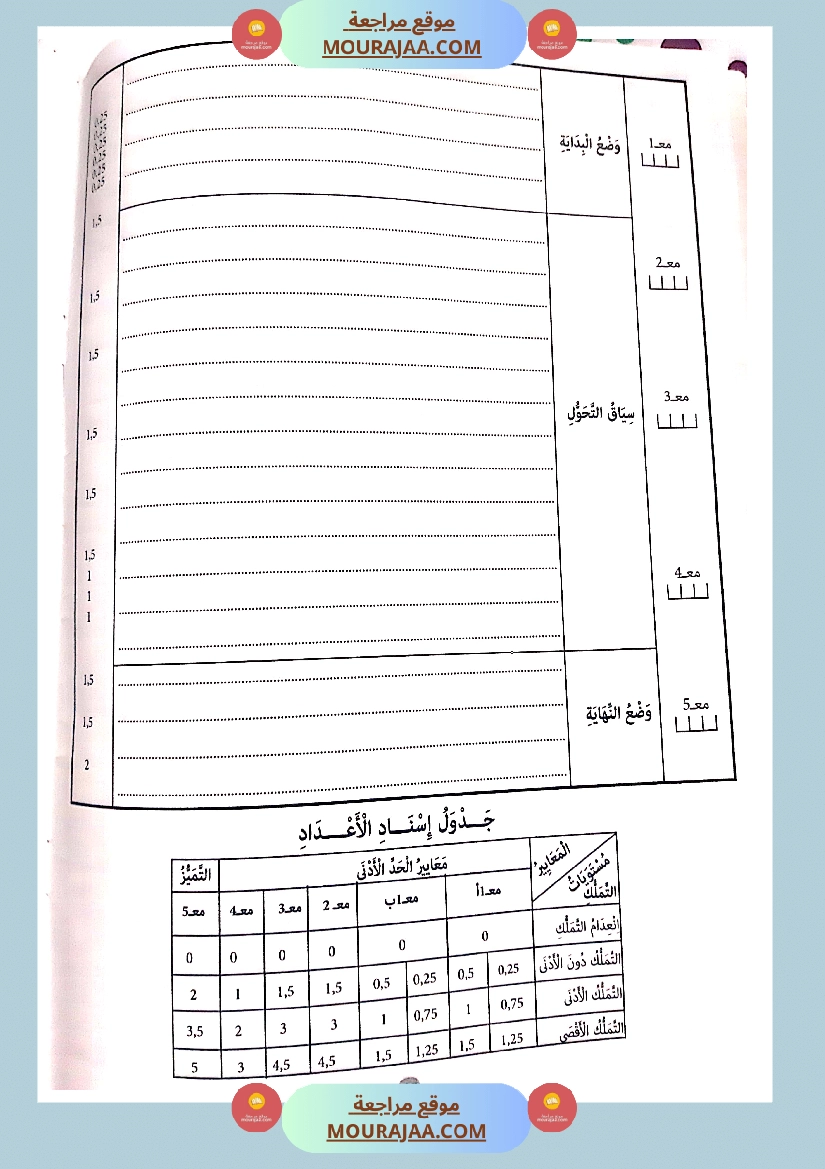 موقع مراجعة
MOURAJAA.COM
وَضْعُ الْبِدَايَةِ
معـ1
معـ2
سِيَاقُ التَّحَوُّلِ
معـ3
معـ4
وَضْعُ النِّهَايَةِ
معـ5
1,5
1,5
1,5
1,5
1,5
1,5
1
1
1
1,5
1,5
2
جَـدْوَلُ إِسْنَـادِ الْأَعْـدَادِ
الْمَعَايِيرُ
مُسْتَوَيَاتُ التَّمَلُّكِ
مَعَايِيرُ الْحَدِّ الْأَدْنَى
التَّمَيُّزُ
معـ1أ معـ1ب معـ2 معـ3 معـ4 معـ5
اِنْعِدَامُ التَّمَلُّكِ 0 0 0 0 0 0
التَّمَلُّكُ دُونَ الْأَدْنَى 0,25 0,5 0,25 0,5 1,5 1,5 1 2
التَّمَلُّكُ الْأَدْنَى 0,75 1 0,75 1 3 3 2 3,5
التَّمَلُّكُ الْأَقْصَى 1,25 1,5 1,25 1,5 4,5 4,5 3 5
موقع مراجعة
MOURAJAA.COM